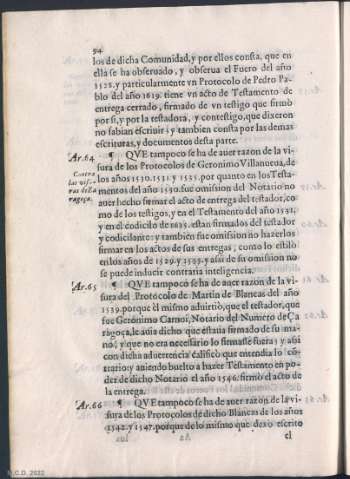 94
los de dicha Comunidad, y por ellos consta, que en
ella se ha obseruado, y obserua el Fuero del año
1528. y particularmente vn Protocolo de Pedro Pa-
blo del año 1619. tiene vn acto de Testamento de
entrega cerrado, firmado de vn testigo que firmò
por si, y por la testadora, y contestigo, que dixeron
no sabian escriuir; y tambien consta por las demas
escrituras, y documentos desta parte.
Ar. 64 ¶ QVE tampoco se ha de auer razon de la vi-
sura de los Protocolos de Geronimo Villanueua, de
los años 1530. 1531. y 1535. por quanto en los Testa-
mentos del año 1530. fue omision del Notario no
auer hecho firmar el acto de entrega del testador, co
mo de los testigos, y en el Testamento del año 1531.
y en el codicilo de 1635. estan firmados del testador
y codicilante: y tambien fue omision no hazerlos
firmar en los actos de sus entregas, como lo estilò
en los años de 1529. y 1539. y assi de su omision no
se puede inducir contraria inteligencia.
Ar. 65 ¶ QVE tampoco se ha de auer razon de la vi-
sura del Protocolo de Martin de Blancas del año
1539. porque èl mismo aduirtiò, que el testador, que
fue Geronimo Carnoi, Notario del Numero de Ça
ragoça, le auia dicho que estaua firmado de su ma-
no, y que no era necesario lo firmasse fuera; y assi
con dicha aduertencia calificò que entendia lo cõ-
trario; y auiendo buelto a hazer Testamento en po-
der de dicho Notario el año 1546. firmò el acto de
la entrega.
Ar. 66 ¶ QVE tampoco se ha de auer razon de la vi-
sura de los Protocolos de dicho Blancas de los años
1542. y 1547. porque de lo mismo que dexo escrito
el